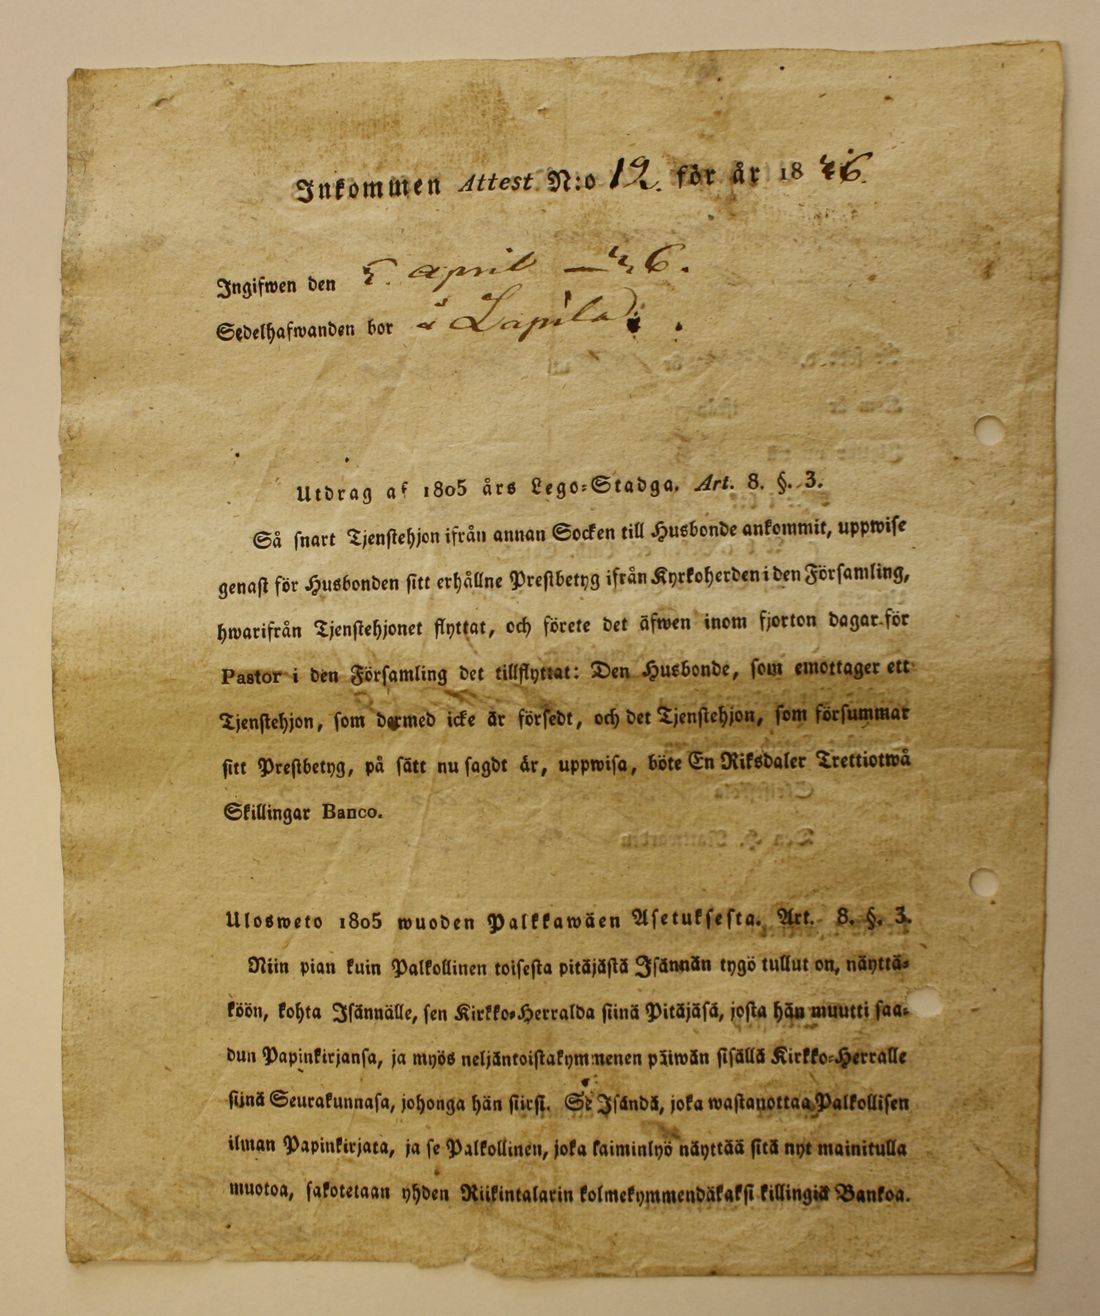 Inkommen Attest N:o 12. för år 1846.
Ingifwen den 5. april — 46.
Sedelhafwanden bor i Lapila
Utdrag af 1805 års Lego-Stadga. Art. 8. §. 3.
Så snart Tjenstehjon ifrån annan Socken till Husbonde ankommit, uppwise
genast för Husbonden sitt erhållne Prestbetyg ifrån Kyrkoherden i den Församling,
hwarifrån Tjenstehjonet flyttat, och förete det äfwen inom fjorton dagar för
Pastor i den Församling det tillflyttat: Den Husbonde, som emottager ett
Tjenstehjon, som dermed icke är försedt, och det Tjenstehjon, som försummar
sitt Prestbetyg, på sätt nu sagdt är, uppwisa, böte En Riksdaler Trettiotwå
Skillingar Banco.
Ulosweto 1805 wuoden Palkkawäen Asetuksesta. Art. 8. §. 3.
Niin pian kuin Palkollinen toisesta pitäjästä Isännän tygö tullut on, näyttä-
köön, kohta Isännälle, sen Kirkko-Herralda siinä Pitäjäsä, josta hän muutti saa-
dun Papinkirjansa, ja myös neljäntoistakymmenen päiwän sisällä Kirkko-Herralle
siinä Seurakunnasa, johonga hän siirsi. Se Isändä, joka wastanottaa Palkollisen
ilman Papinkirjata, ja se Palkollinen, joka laiminlyö näyttää sitä nyt mainitulla
muotoa, sakotetaan yhden Riikintalarin kolmekymmendäkaksi killingiä Bankoa.